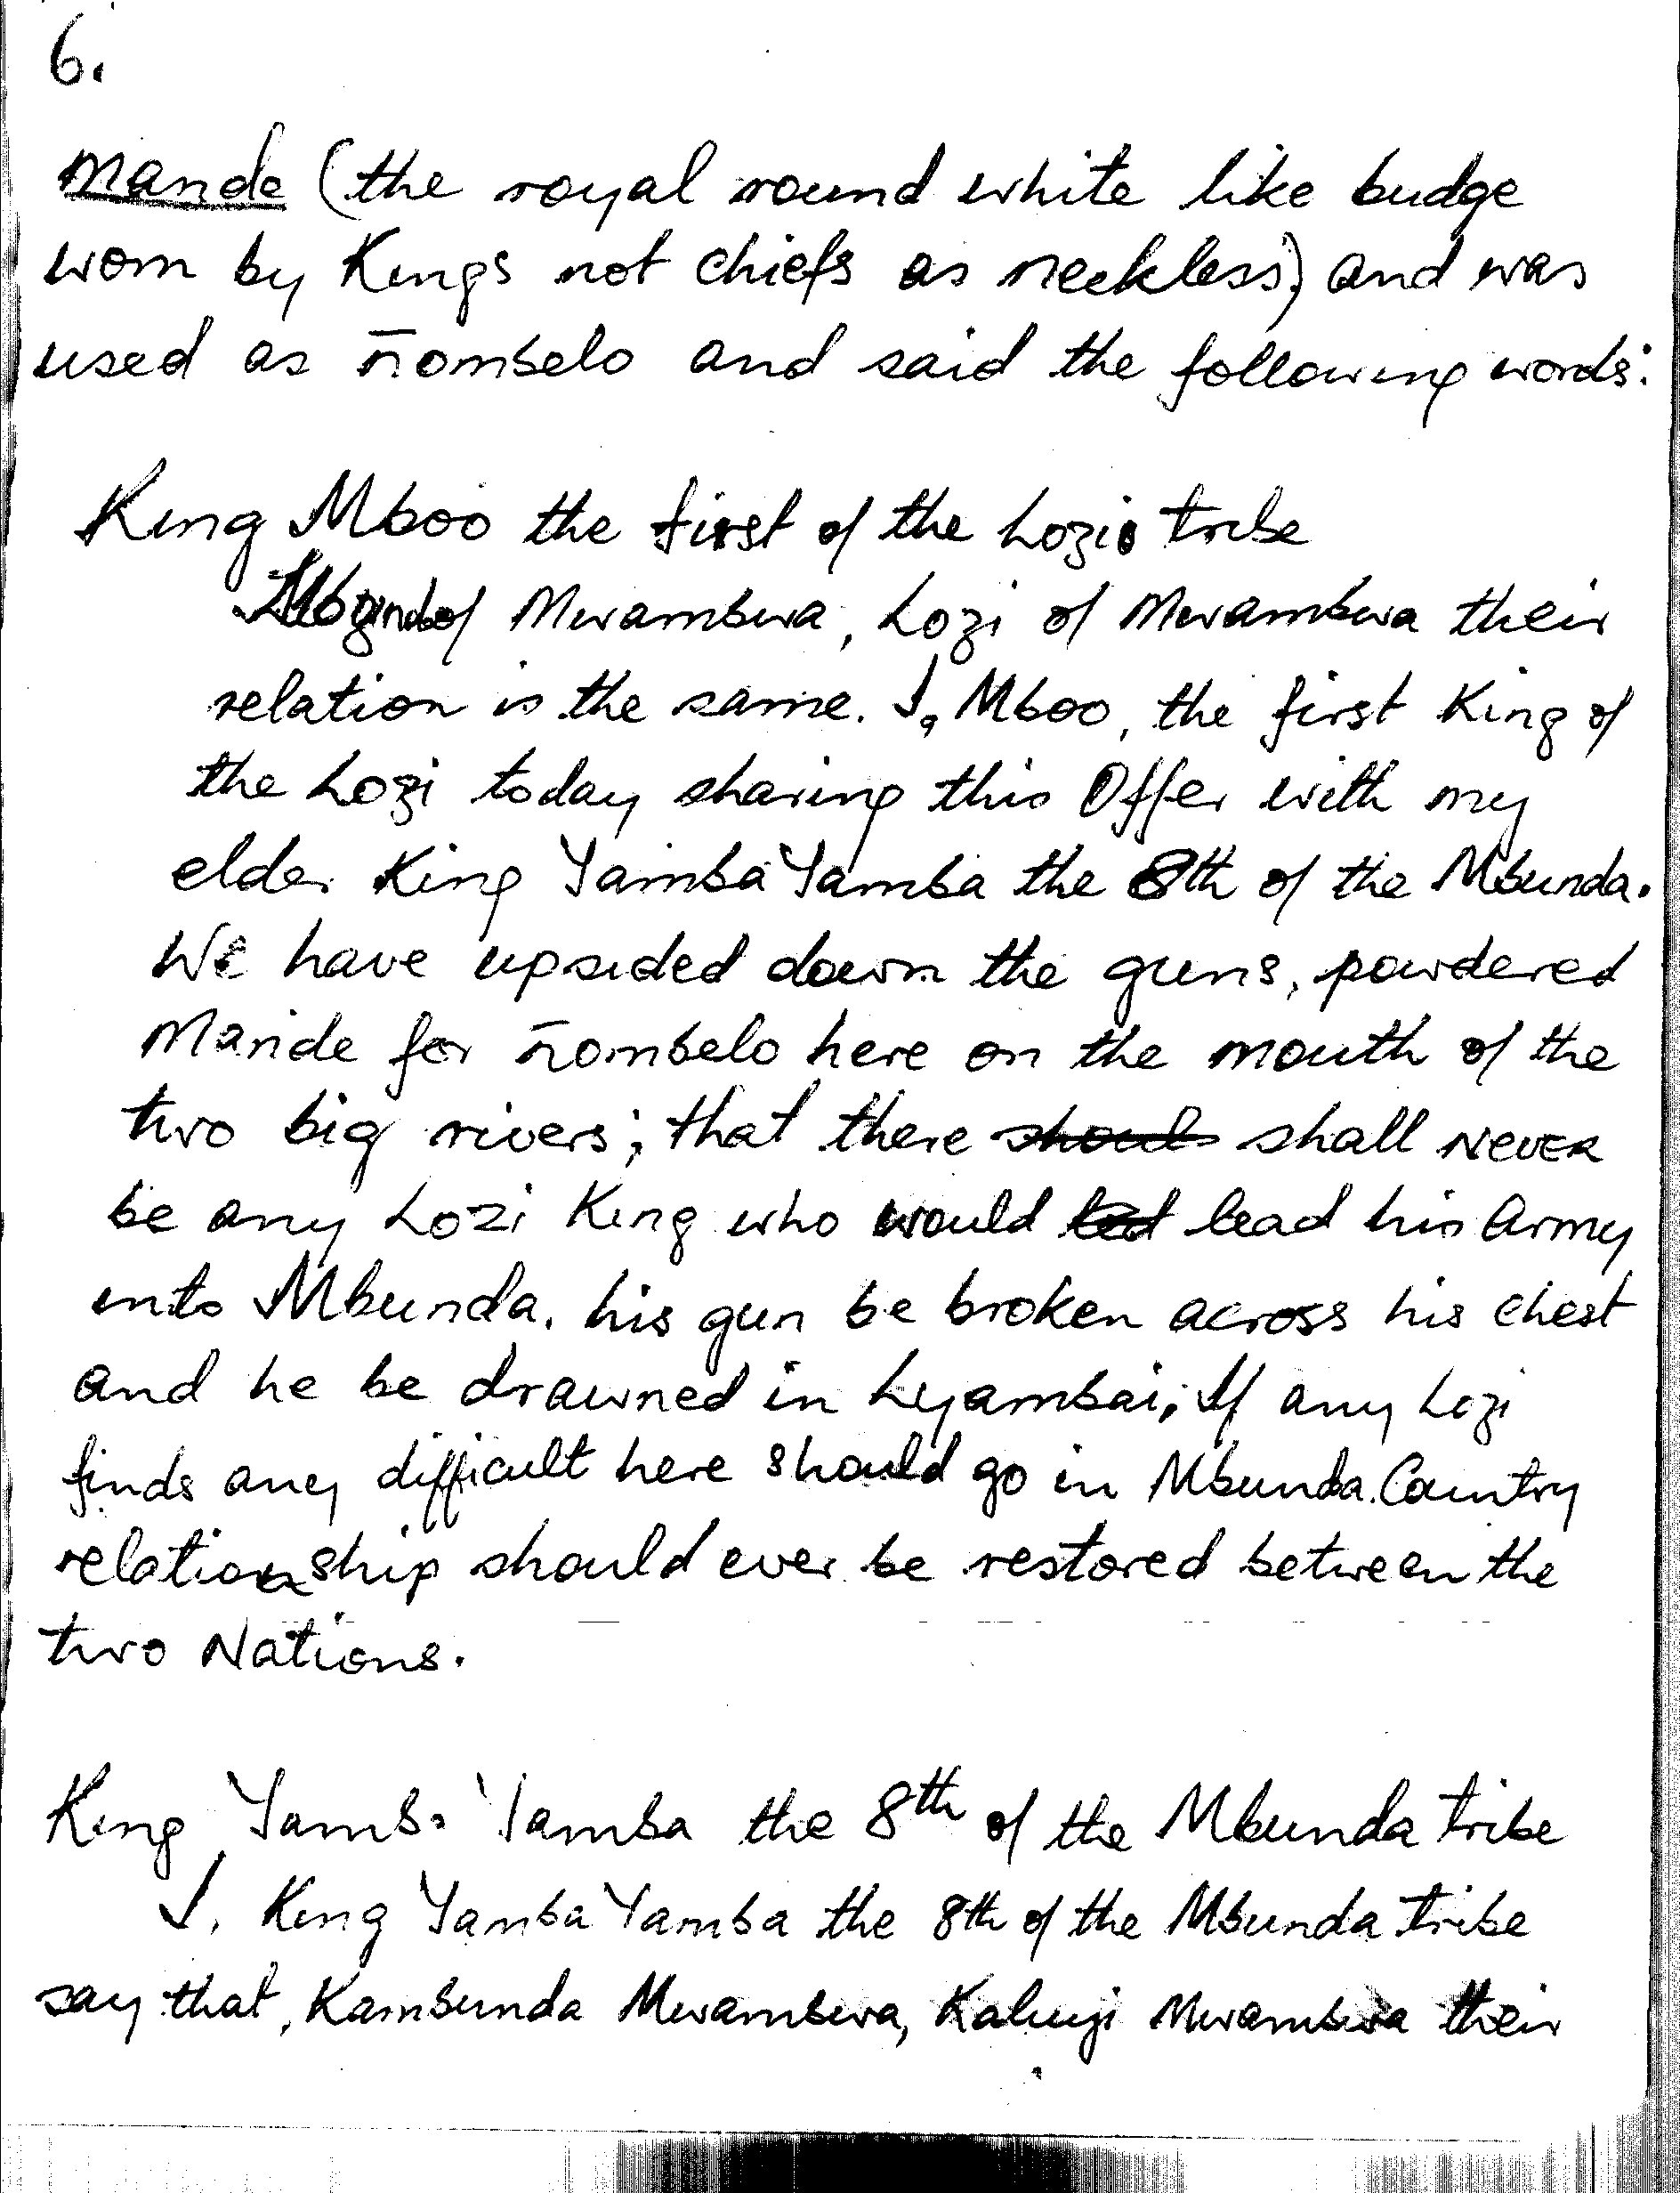 6.
Mande (the royal round white like budge
worn by Kings not chiefs as neckless) and was
used as n̄ombelo and said the following words:
King Mboo the first of the Lozi tribe
Mbunda of Mwambwa, Lozi of Mwambwa their
relation is the same. I, Mboo, the first King of
the Lozi today sharing this Offer with my
elder King Yamba Yamba the 8th of the Mbunda.
We have upsided down the guns, powdered
Mande for n̄ombelo here on the mouth of the
two big rivers; that there shoul shall NEVER
be any Lozi King who would led lead his Army
into Mbunda. his gun be broken across his chest
and he be drawned in Lyambai, If any Lozi
finds any difficult here should go in Mbunda Country
relationship should ever be restored between the
two Nations.
King Yamba Yamba the 8th of the Mbunda tribe
I, King Yamba Yamba the 8th of the Mbunda tribe
say that, Kambunda Mwambwa, Kaluyi Mwambwa their